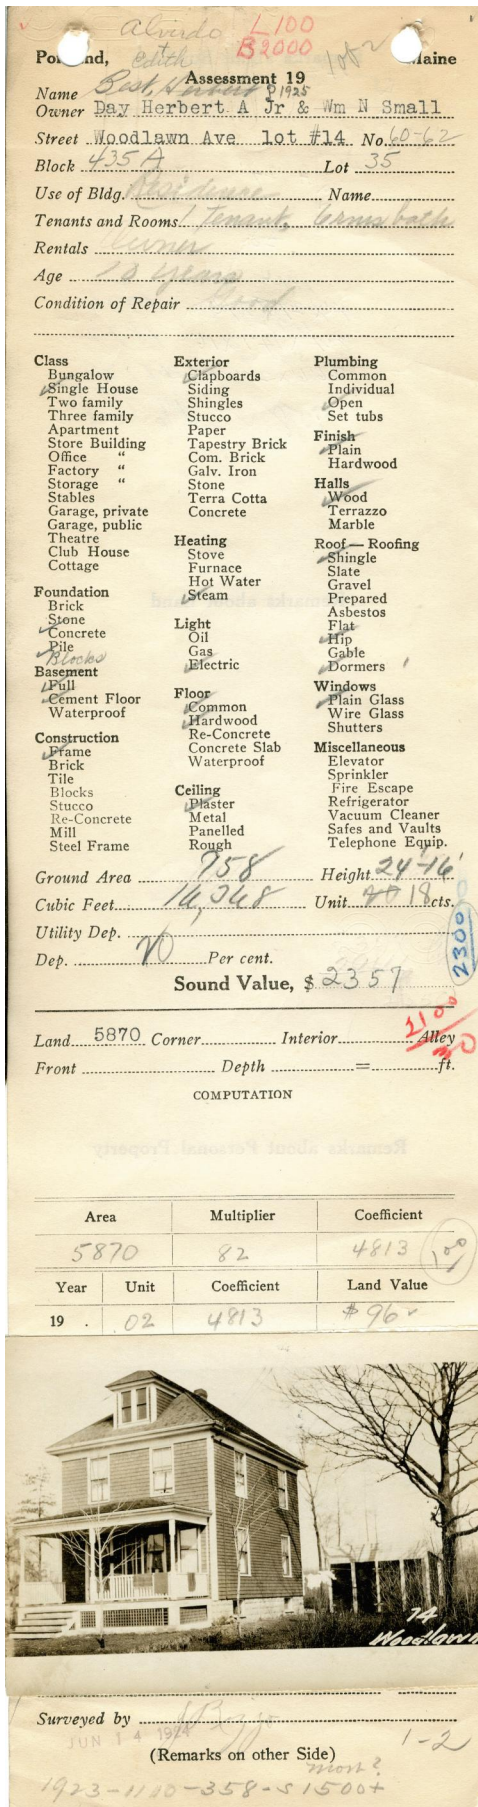 Alvirdo L100
B2000
Portland, Edith lot 2 Maine
Assessment 19
Name Best, Herbert P 1925
Owner Day Herbert A Jr & Wm N Small
Street Woodlawn Ave lot #14 No. 60-62
Block 435 A Lot 35
Use of Bldg. Residence Name
Tenants and Rooms 1 Tenant, 6 rms bath
Rentals Owner
Age 10 years
Condition of Repair Good
Class
Bungalow
Single House
Two family
Three family
Apartment
Store Building
Office "
Factory "
Storage "
Stables
Garage, private
Garage, public
Theatre
Club House
Cottage
Foundation
Brick
Stone
Concrete
Pile
Blocks
Basement
Full
Cement Floor
Waterproof
Construction
Frame
Brick
Tile
Blocks
Stucco
Re-Concrete
Mill
Steel Frame
Exterior
Clapboards
Siding
Shingles
Stucco
Paper
Tapestry Brick
Com. Brick
Galv. Iron
Stone
Terra Cotta
Concrete
Heating
Stove
Furnace
Hot Water
Steam
Light
Oil
Gas
Electric
Floor
Common
Hardwood
Re-Concrete
Concrete Slab
Waterproof
Ceiling
Plaster
Metal
Panelled
Rough
Plumbing
Common
Individual
Open
Set tubs
Finish
Plain
Hardwood
Halls
Wood
Terrazzo
Marble
Roof—Roofing
Shingle
Slate
Gravel
Prepared
Asbestos
Flat
Hip
Gable
Dormers 1
Windows
Plain Glass
Wire Glass
Shutters
Miscellaneous
Elevator
Sprinkler
Fire Escape
Refrigerator
Vacuum Cleaner
Safes and Vaults
Telephone Equip.
Ground Area 758 Height 24'-16'
Cubic Feet 16,368 Unit 20 18 cts.
Utility Dep.
Dep. 20 Per cent.
2300
Sound Value, $ 2357
2100
Land 5870 Corner Interior Alley
Front Depth = ft.
COMPUTATION
Area Multiplier Coefficient
5870 82 4813 100
Year Unit Coefficient Land Value
19 . 02 4813 $ 96
74
Woodlawn
Surveyed by
JUN 14 1924
1-2
(Remarks on other Side)
most?
1923-1100-358-S 1500+